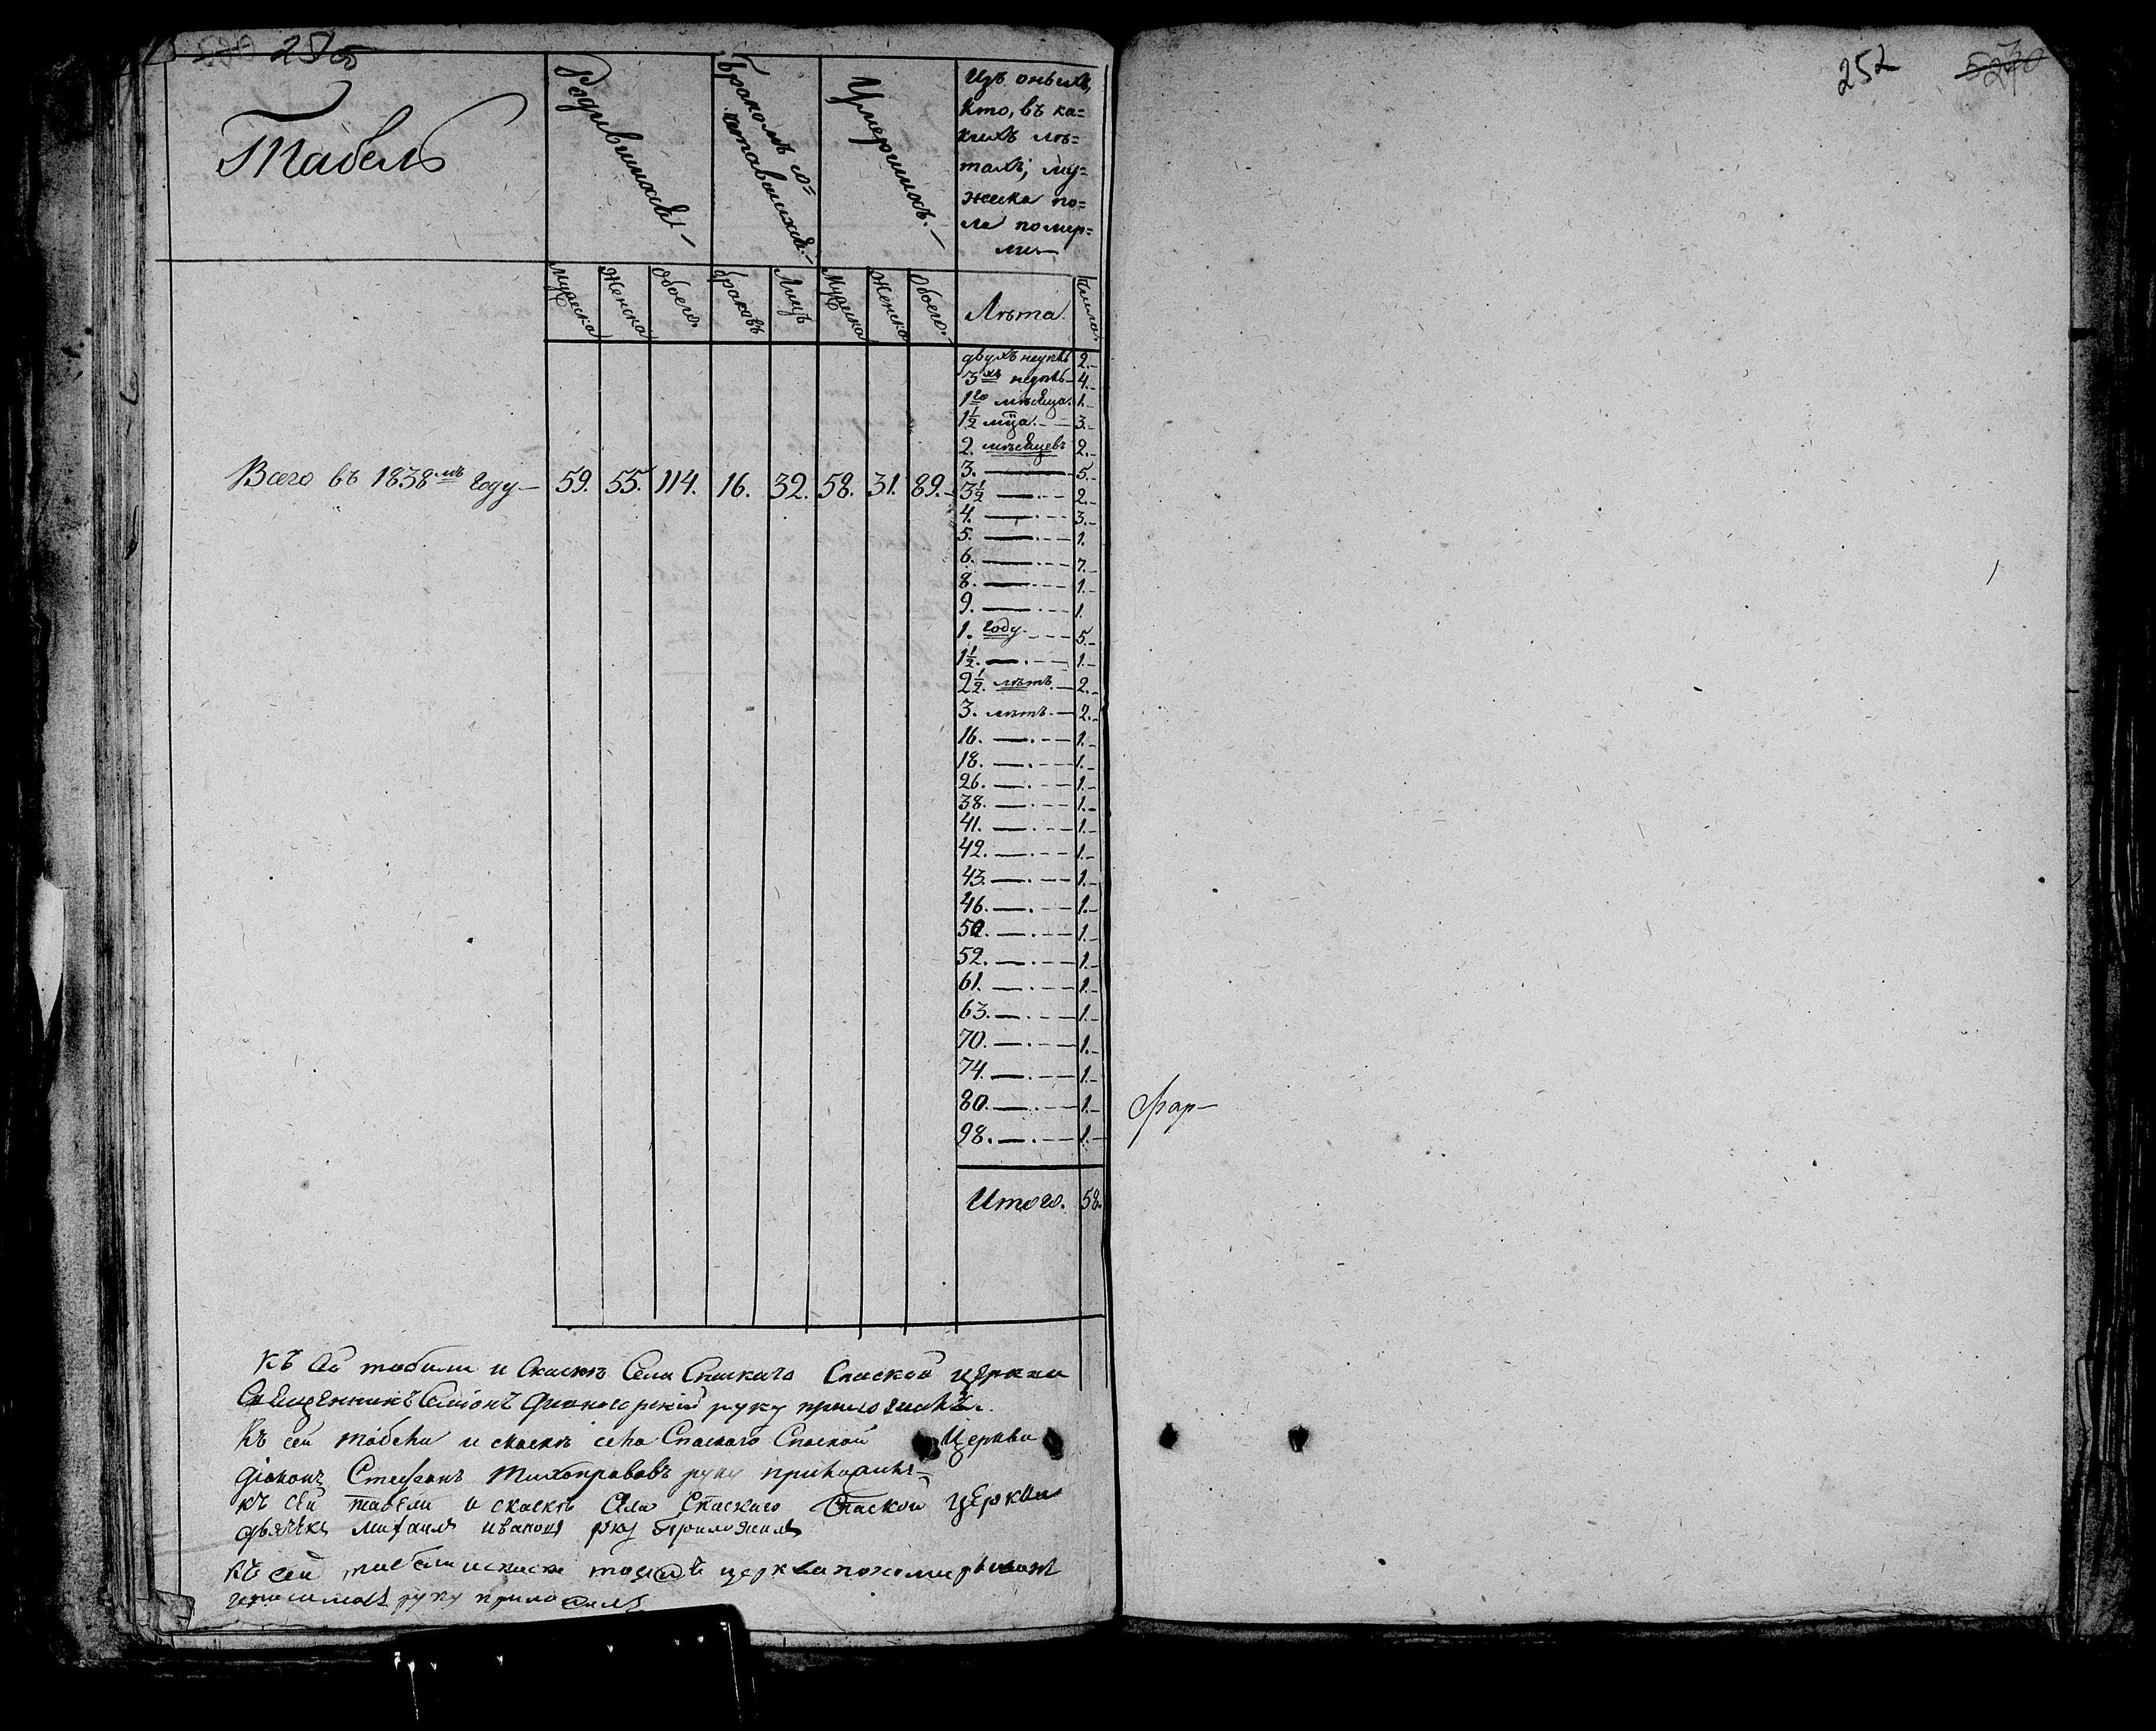 252
Табель
Родившихся
Бракомъ со=
четавшихся.
Умершихъ.
Изъ оныхъ,
кто, въ ка=
кихъ лѣ=
тахъ, му=
жеска по=
ла помер=
ли
Мужеска Женска Обоего. Браковъ Лицъ Мужеска Женско Обоего. Лѣта. Число.
двухъ недѣль 2.
3хъ недѣль 4.
1го мѣсяца. 1.
1½ мца. 3.
2. мѣсяцевъ 2.
3. 5.
Всего въ 1838мъ году 59. 55. 114. 16. 32. 58. 31. 89.
3½ 2.
4. 3.
5. 1.
6. 7.
8. 1.
9. 1.
1. году 5.
1½. 1.
2½. лѣтъ. 2.
3. лѣтъ. 2.
16. 1.
18. 1.
26. 1.
38. 1.
41. 1.
42. 1.
43. 1.
46. 1.
50. 1.
52. 1.
61. 1.
63. 1.
70. 1.
74. 1.
80. 1.
98. 1.
Итого. 58.
Къ сей табели и скаскѣ Села Спаскаго Спаской церкви
Священникъ Симионъ руку приложилъ.
Къ сей табели и скаскѣ села Спаскаго Спаской Церкви
діаконъ Стефанъ Тихонравовъ руку приложилъ
къ сей табели и скаскѣ села Спаскаго Спаской церкви
дьячекъ михаилъ ивановъ руку приложилъ
къ сей табели и скаске тоей церкви пономарь
руку приложилъ